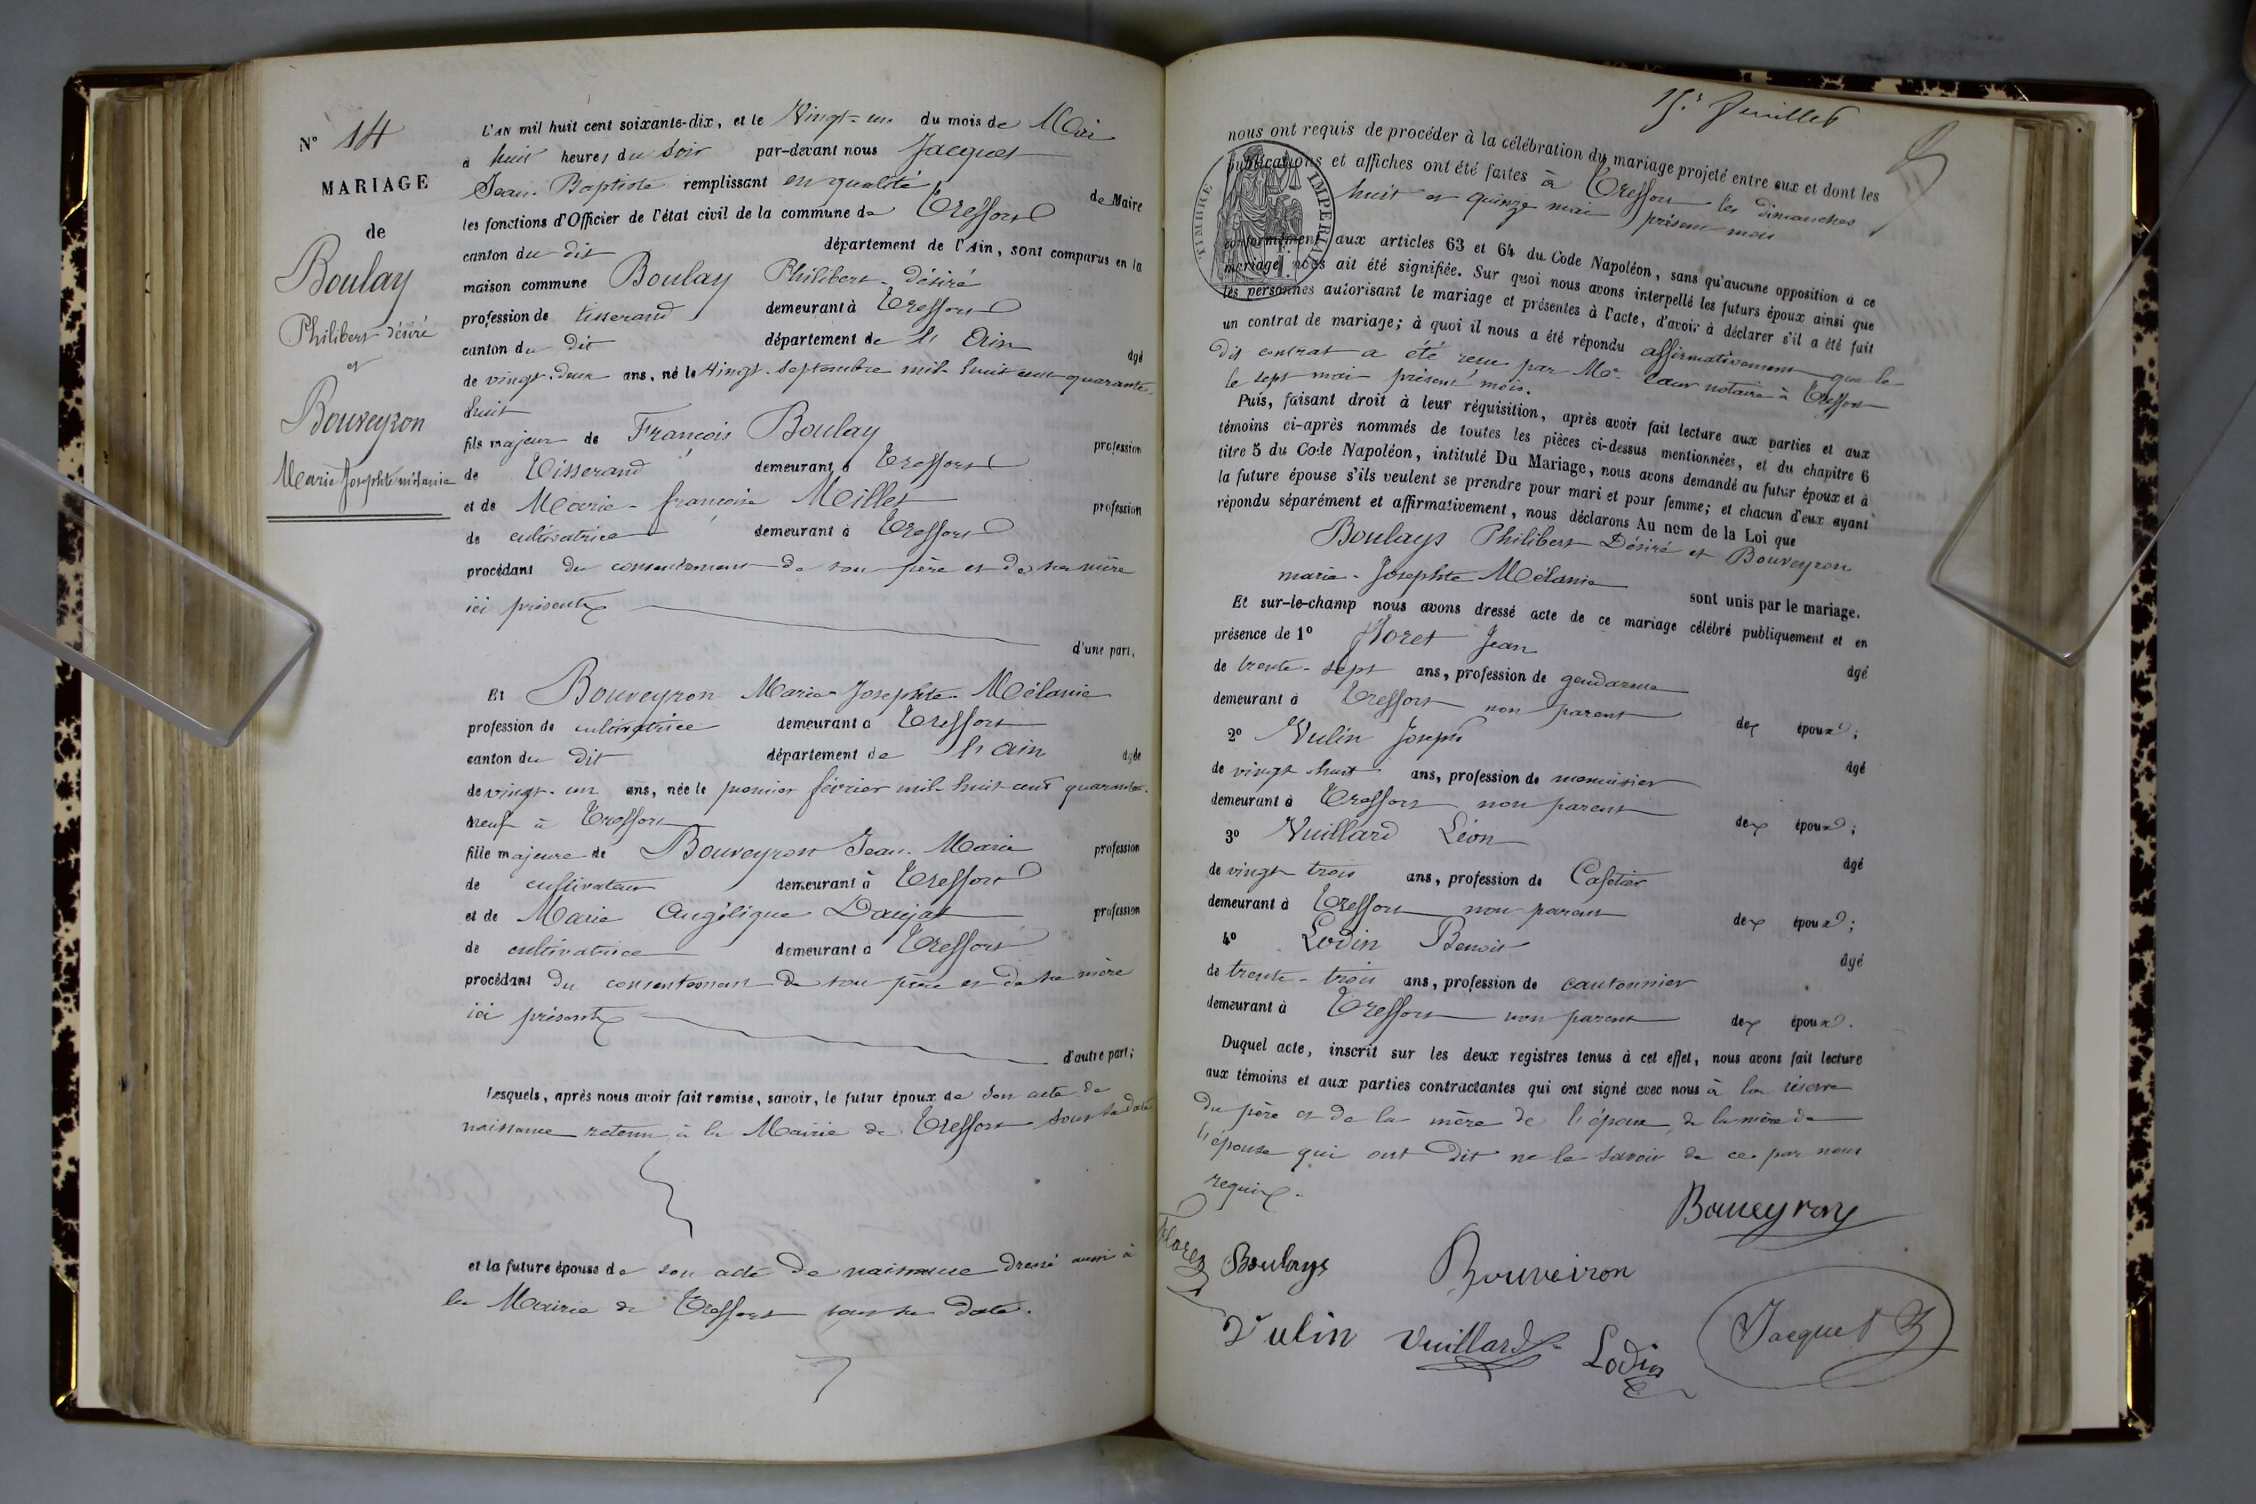 N° 14
MARIAGE
de
Boulay
Philibert-désiré
et
Bouveyron
Marie Josephte mélanie
L'AN mil huit cent soixante-dix, et le Vingt-un du mois de Mai
à huit heures du Soir par-devant nous Jacquet
Jean-Baptiste remplissant en qualité de Maire
les fonctions d'Officier de l'état civil de la commune de Treffort
canton du dit département de l'Ain, sont comparus en la
maison commune Boulay Philibert-désiré
profession de tisserand demeurant à Treffort
canton du dit département de l'Ain âgé
de vingt-deux ans, né le Vingt-Septembre mil huit cent quarante-
huit
fils majeur de François Boulay profession
de Tisserand demeurant à Treffort
et de Marie-françoise Millet profession
de cultivatrice demeurant à Treffort
procédant du consentement de son père et de sa mère
ici présents
d'une part,
Et Bouveyron Marie-Josephte-Mélanie
profession de cultivatrice demeurant à Treffort
canton du dit département de l'ain âgée
de vingt-un ans, née le premier février mil huit cent quarante-
neuf à Treffort
fille majeure de Bouveyron Jean-Marie profession
de cultivateur demeurant à Treffort
et de Marie Angélique Daujat profession
de cultivatrice demeurant à Treffort
procédant du consentement de son père et de sa mère
ici présents
d'autre part;
Lesquels, après nous avoir fait remise, savoir, le futur époux de son acte de
naissance retenu à la Mairie de Treffort sous sa date
et la future épouse de son acte de naissance dressé aussi à
la Mairie de Treffort sous sa date.
15e feuillet
nous ont requis de procéder à la célébration du mariage projeté entre eux et dont les
publications et affiches ont été faites à Treffort les dimanches
huit et quinze mai présent mois
TIMBRE IMPERIAL
conformément aux articles 63 et 64 du Code Napoléon, sans qu'aucune opposition à ce
mariage nous ait été signifiée. Sur quoi nous avons interpellé les futurs époux ainsi que
les personnes autorisant le mariage et présentes à l'acte, d'avoir à déclarer s'il a été fait
un contrat de mariage; à quoi il nous a été répondu affirmativement que le
dit contrat a été reçu par Me notaire à Treffort
le sept mai présent mois.
Puis, faisant droit à leur réquisition, après avoir fait lecture aux parties et aux
témoins ci-après nommés de toutes les pièces ci-dessus mentionnées, et du chapitre 6
titre 5 du Code Napoléon, intitulé Du Mariage, nous avons demandé au futur époux et à
la future épouse s'ils veulent se prendre pour mari et pour femme; et chacun d'eux ayant
répondu séparément et affirmativement, nous déclarons Au nom de la Loi que
Boulays Philibert Désiré et Bouveyron
marie-Josephte Mélanie sont unis par le mariage.
Et sur-le-champ nous avons dressé acte de ce mariage célébré publiquement et en
présence de 1° Floret Jean âgé
de trente-sept ans, profession de gendarme
demeurant à Treffort non parent des époux;
2° Vulin Joseph âgé
de vingt huit ans, profession de menuisier
demeurant à Treffort non parent des époux;
3° Vuillard Léon âgé
de vingt trois ans, profession de Cafetier
demeurant à Treffort non parent des époux;
4° Lodin Benoit âgé
de trente-trois ans, profession de cantonnier
demeurant à Treffort non parent des époux.
Duquel acte, inscrit sur les deux registres tenus à cet effet, nous avons fait lecture
aux témoins et aux parties contractantes qui ont signé avec nous à la réserve
du père et de la mère de l'époux, de la mère de
l'épouse qui ont dit ne le savoir de ce par nous
requis.
Boulays Bouveiron Bouveyron
Vulin Vuillard Lodin Jacquet